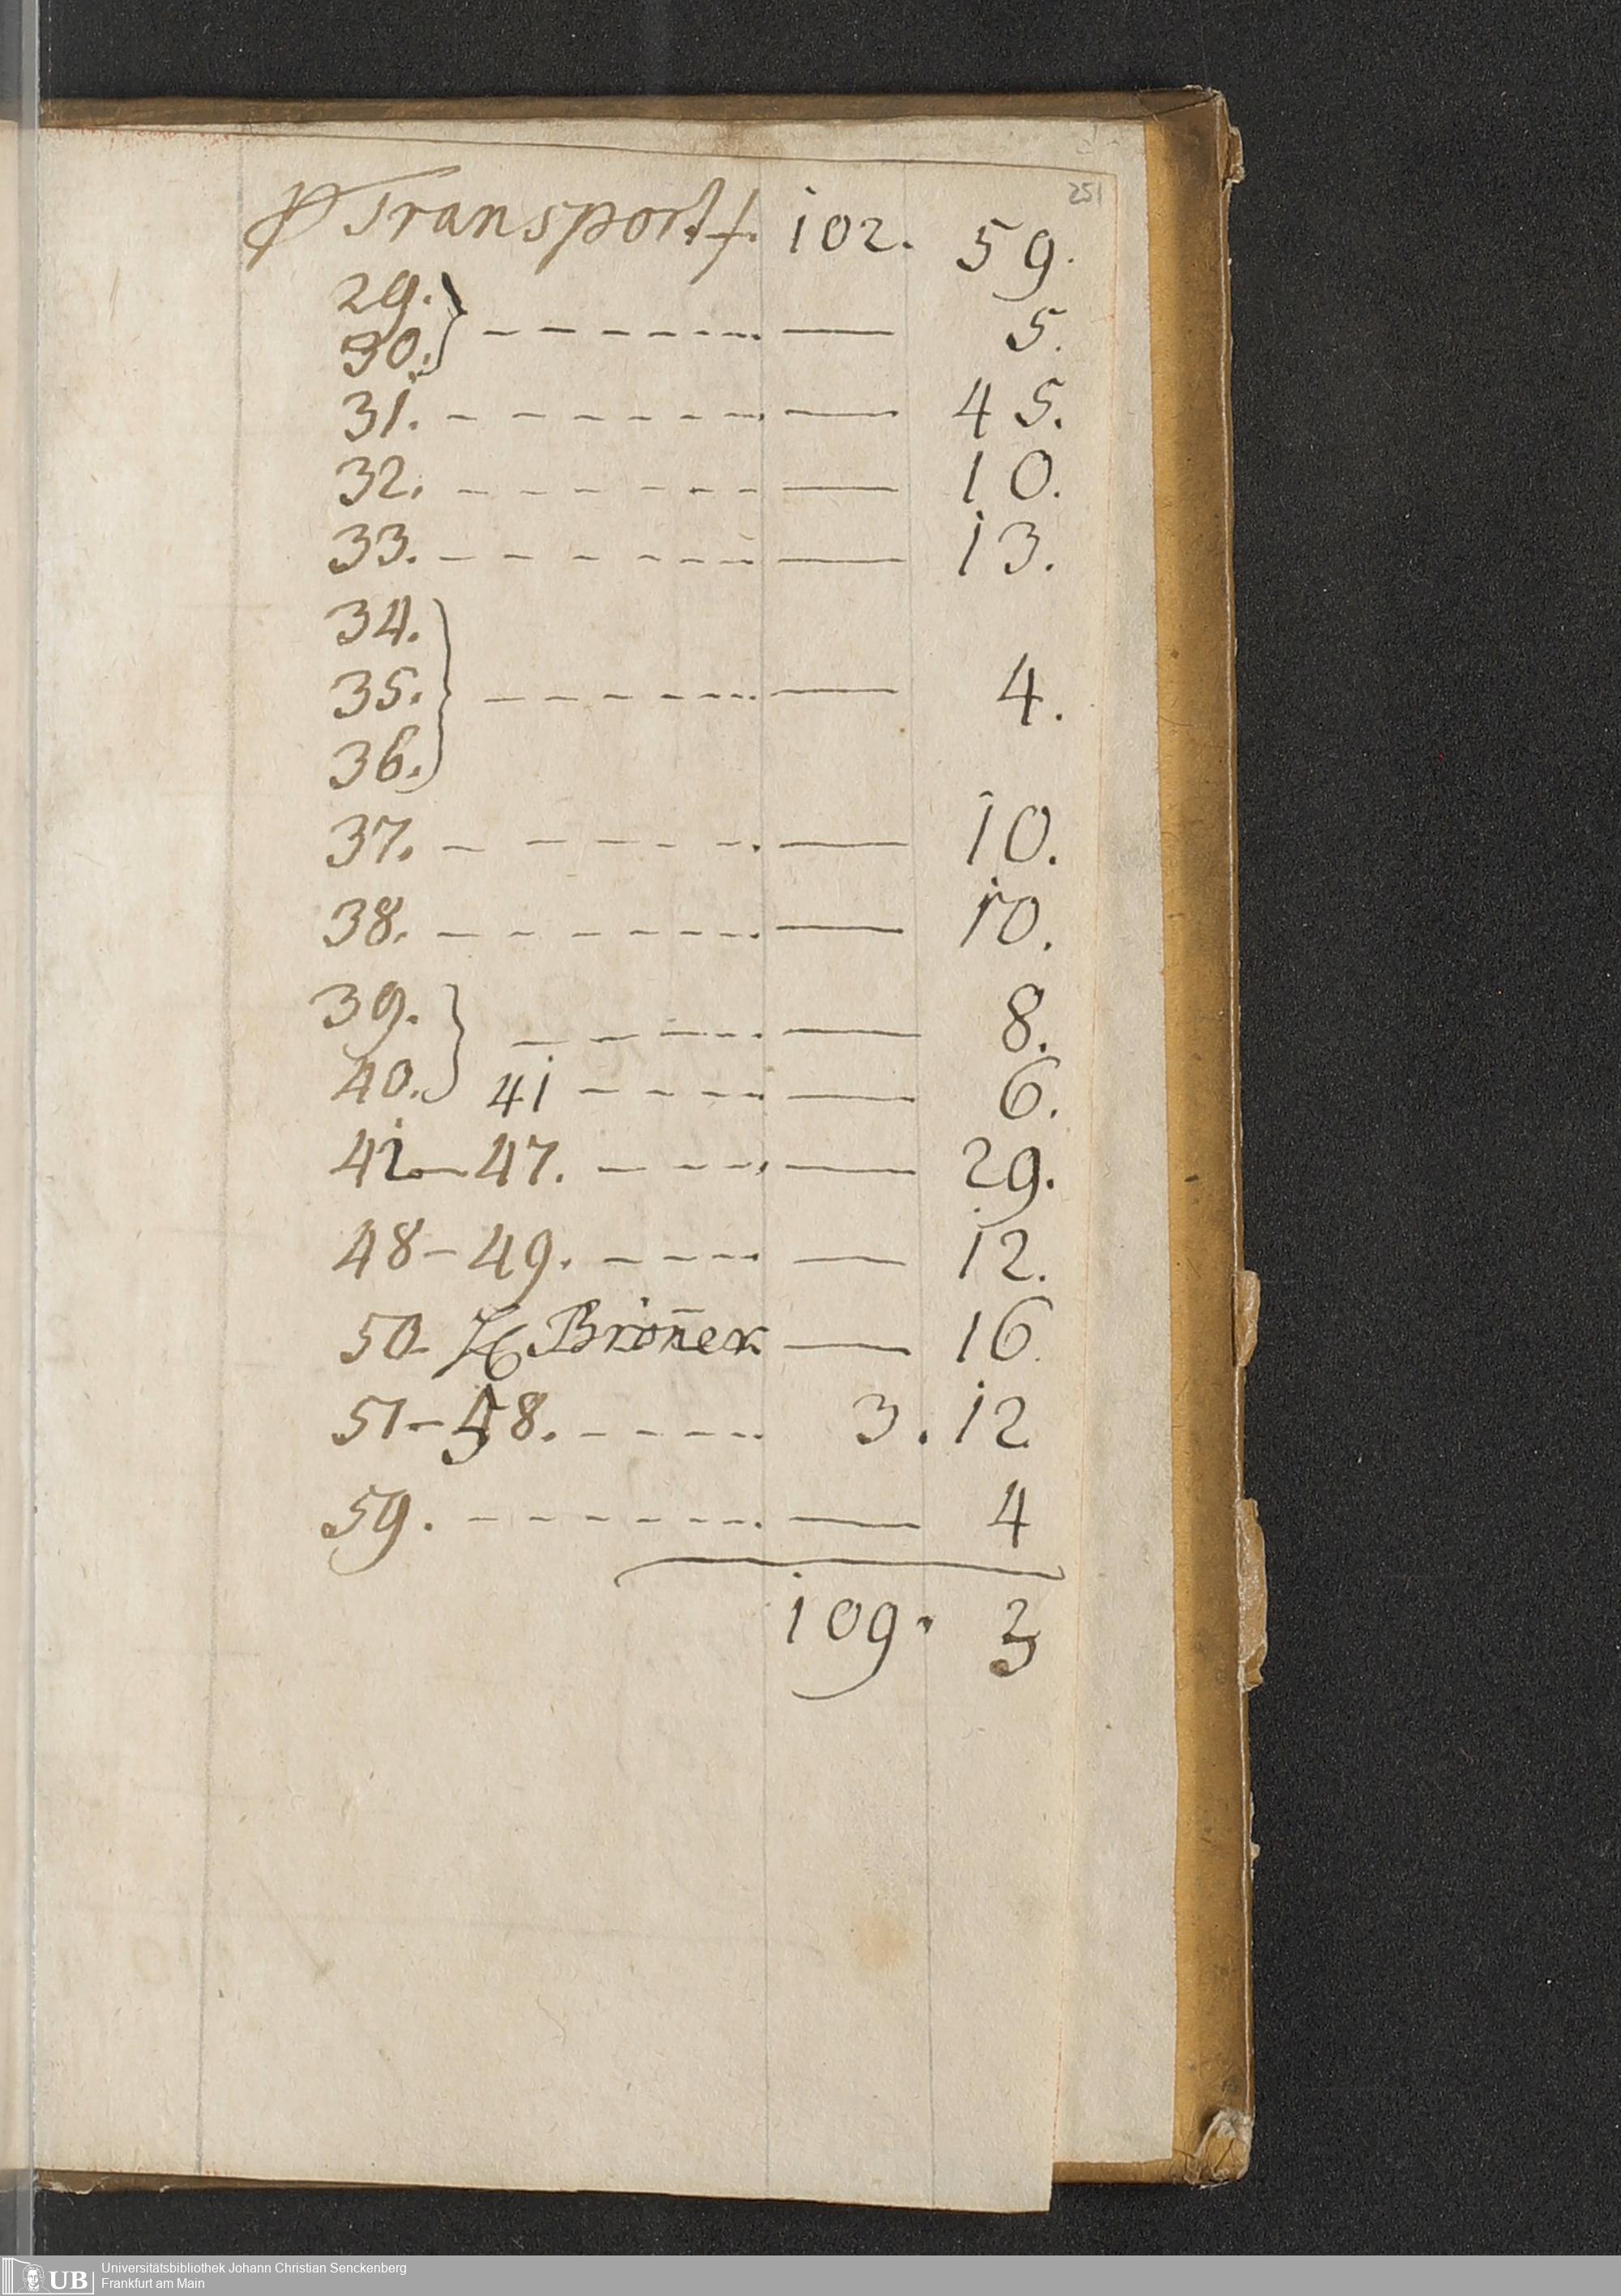 251
P Transport f. 102. 59.
29.
30. } - - - - - - - — 5.
31. - - - - - - - — 45.
32. - - - - - - - — 10.
33. - - - - - - - — 13.
34.
35. } - - - - - - - — 4.
36.
37. - - - - - - — 10.
38. - - - - - - - — 10.
39. } - - - - - — 8.
40. 41 - - - - — 6.
42 - 47. - - - - — 29.
48 - 49. - - - - — 12.
50 - H Brön̄er — 16.
51 - 58. - - - - - 3. 12
59. - - - - - - - — 4
109. 3
UB Universitätsbibliothek Johann Christian Senckenberg
Frankfurt am Main